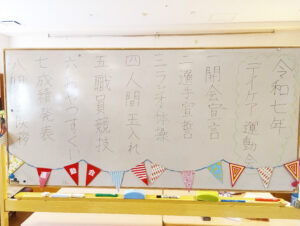 令和七年
デイケア 運動会
一 開会宣言
二 選手宣誓
三 ラジオ体操
四 人間玉入れ
五 職員競技
六
七 成績発表
八
運動会